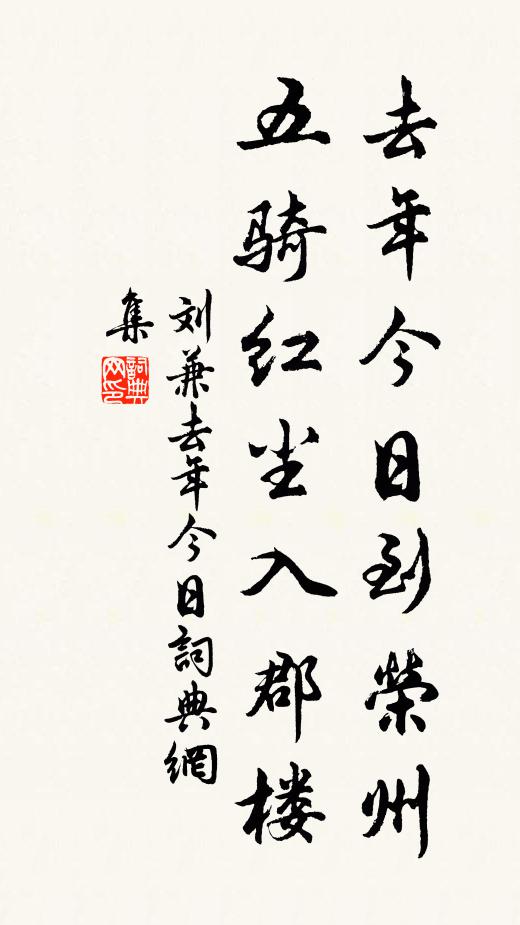 去年今日到榮州
五骑红尘入郡楼
刘兼去年今日詞典網
集
詞典网印